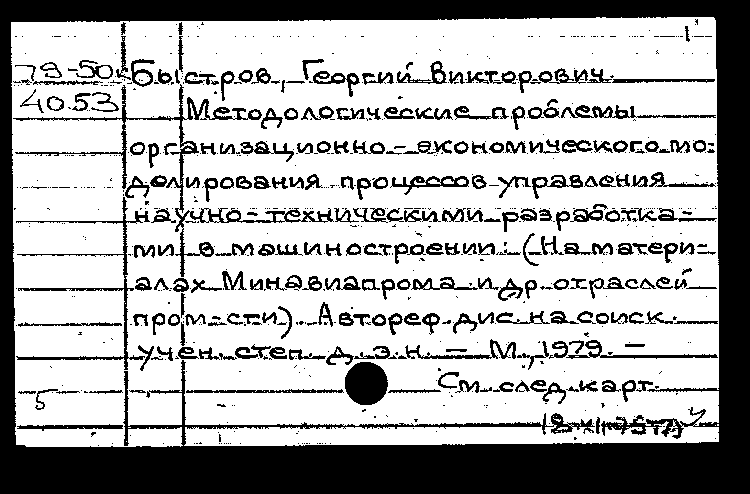 1
79-50к Быстров, Георгий Викторович.
4053 Методологические проблемы
организационно-экономического мо-
делирования процессов управления
научно-техническими разработка-
ми в машиностроении: (На матери-
алах Минавиапрома и др. отраслей
пром-сти). Автореф. дис. на соиск.
учен. степ. д. э. н. — М., 1979. —
См. след. карт.
5